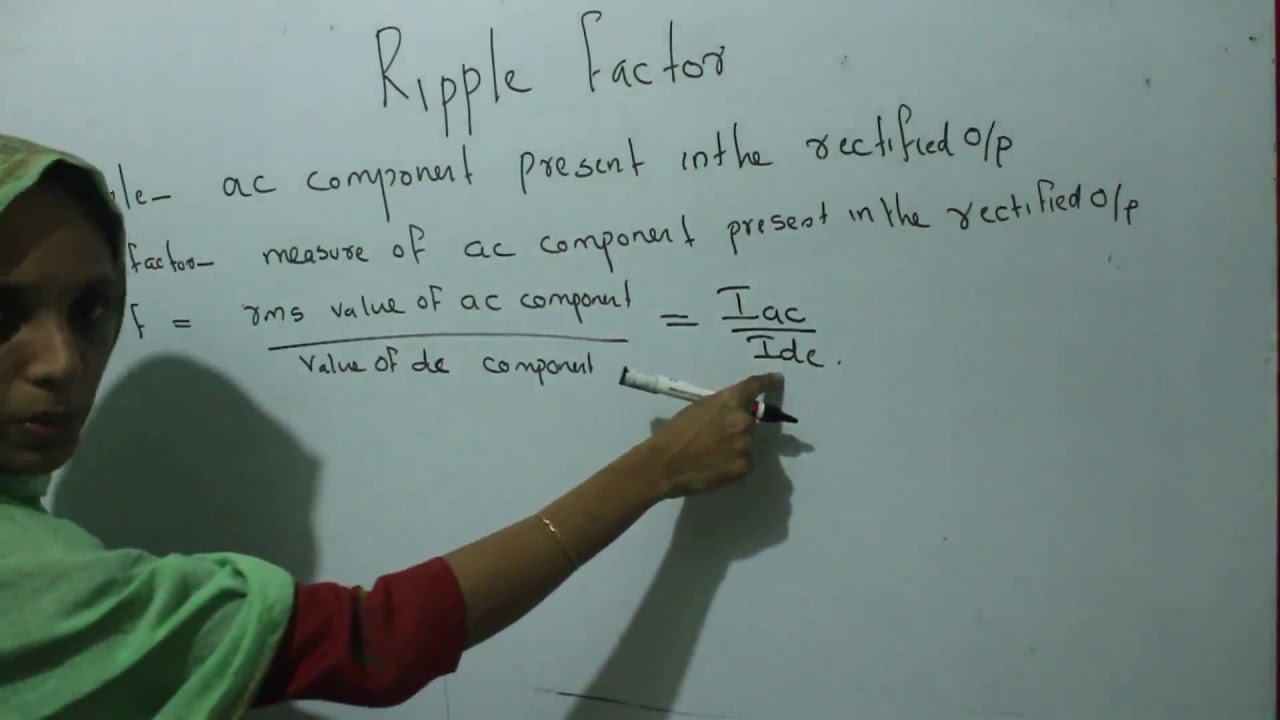 Ripple factor
ple- ac component present in the rectified o/p
factor- measure of ac component present in the rectified o/p
f = rms value of ac component / value of dc component = Iac / Idc.